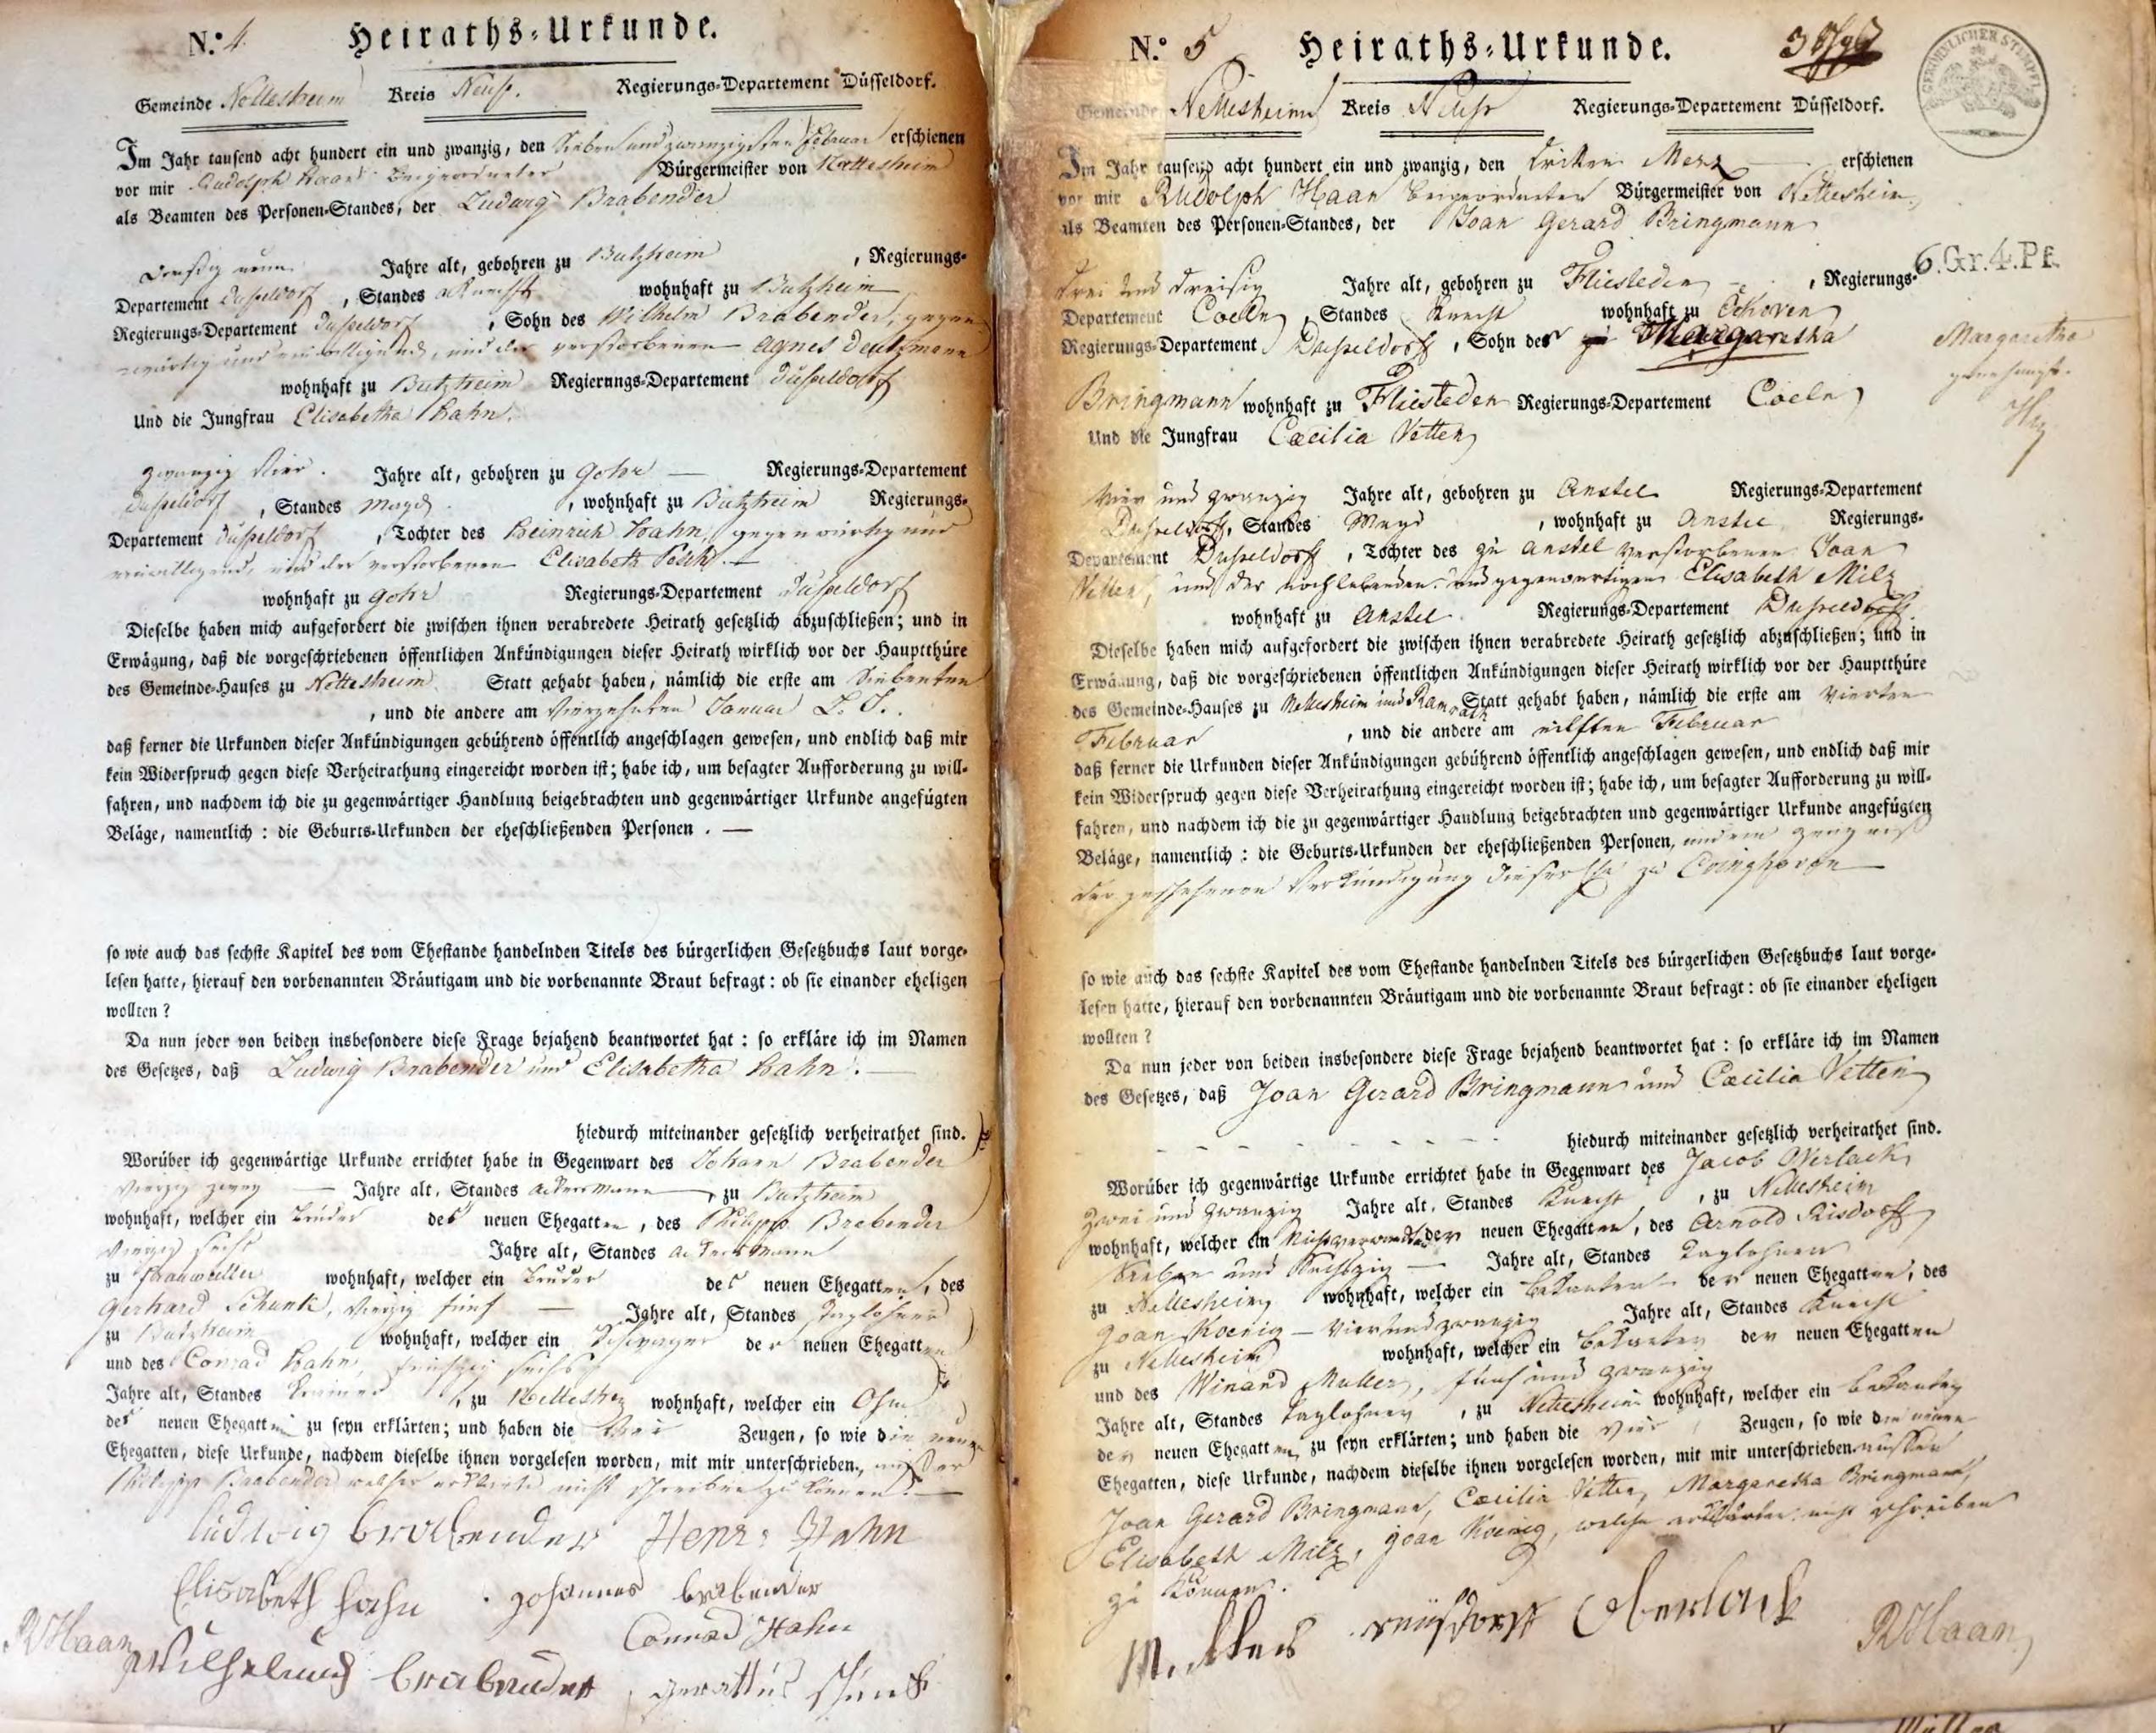 N.° 4. Heiraths-Urkunde.
Gemeinde Nettesheim Kreis Neuß. Regierungs-Departement Düsseldorf.
Im Jahr tausend acht hundert ein und zwanzig, den sieben und zwanzigsten Februar erschienen
vor mir Rudolph Haan Beigeordneter Bürgermeister von Nettesheim
als Beamten des Personen-Standes, der Ludwig Brabender
dreißig neun Jahre alt, gebohren zu Butzheim, Regierungs-
Departement Düsseldorf, Standes wohnhaft zu Butzheim
Regierungs-Departement Düsseldorf, Sohn des Wilhelm Brabender, gegen-
wärtig und einwilligend, und der verstorbenen Agnes Deutzmann
wohnhaft zu Butzheim Regierungs-Departement Düsseldorf
Und die Jungfrau Elisabetha Hahn.
zwanzig vier. Jahre alt, gebohren zu Gohr — Regierungs-Departement
Düsseldorf, Standes Magd, wohnhaft zu Butzheim Regierungs-
Departement Düsseldorf, Tochter des Heinrich Hahn, gegenwärtig und
einwilligend, und der verstorbenen Elisabeth
wohnhaft zu Gohr Regierungs-Departement Düsseldorf
Dieselbe haben mich aufgefordert die zwischen ihnen verabredete Heirath gesetzlich abzuschließen; und in
Erwägung, daß die vorgeschriebenen öffentlichen Ankündigungen dieser Heirath wirklich vor der Hauptthüre
des Gemeinde-Hauses zu Nettesheim Statt gehabt haben, nämlich die erste am Siebenten
, und die andere am Vierzehnten Januar L. J.
daß ferner die Urkunden dieser Ankündigungen gebührend öffentlich angeschlagen gewesen, und endlich daß mir
kein Widerspruch gegen diese Verheirathung eingereicht worden ist; habe ich, um besagter Aufforderung zu will-
fahren, und nachdem ich die zu gegenwärtiger Handlung beigebrachten und gegenwärtiger Urkunde angefügten
Beläge, namentlich : die Geburts-Urkunden der eheschließenden Personen . —
so wie auch das sechste Kapitel des vom Ehestande handelnden Titels des bürgerlichen Gesetzbuchs laut vorge-
lesen hatte, hierauf den vorbenannten Bräutigam und die vorbenannte Braut befragt : ob sie einander eheligen
wollten ?
Da nun jeder von beiden insbesondere diese Frage bejahend beantwortet hat : so erkläre ich im Namen
des Gesetzes, daß Ludwig Brabender und Elisabetha Hahn. —
hiedurch miteinander gesetzlich verheirathet sind.
Worüber ich gegenwärtige Urkunde errichtet habe in Gegenwart des Johann Brabender
Vierzig zwey — Jahre alt, Standes Ackersmann, zu Butzheim
wohnhaft, welcher ein Bruder des neuen Ehegatten, des Philipp Brabender
Vierzig sechs Jahre alt, Standes Ackersmann
zu wohnhaft, welcher ein Bruder des neuen Ehegatten, des
Gerhard Schunk, Vierzig fünf — Jahre alt, Standes Taglohner
zu Butzheim wohnhaft, welcher ein Schwager der neuen Ehegatten
und des Conrad Hahn, fünfzig sechs
Jahre alt, Standes , zu Nettesheim wohnhaft, welcher ein Ohm
der neuen Ehegattin zu seyn erklärten; und haben die Vier Zeugen, so wie die neuen
Ehegatten, diese Urkunde, nachdem dieselbe ihnen vorgelesen worden, mit mir unterschrieben, außer
Philipp Brabender welcher erklärte nicht schreiben zu können. —
Ludwig Brabender Henr: Hahn
Elisabeth Hahn Johannes Brabender
RHaan Conrad Hahn
Wilhelmus Brabender Schunk
N.° 5 Heiraths-Urkunde.
Gemeinde Nettesheim Kreis Neuß Regierungs-Departement Düsseldorf.
Im Jahr tausend acht hundert ein und zwanzig, den dritten Merz — erschienen
vor mir Rudolph Haan beigeordneter Bürgermeister von Nettesheim
als Beamten des Personen-Standes, der Joan Gerard Bringmann
6.Gr.4.Pf.
drei und dreisig Jahre alt, gebohren zu Fliesteden, Regierungs-
Departement Coeln, Standes Knecht wohnhaft zu Eckoven
Regierungs-Departement Düsseldorf, Sohn der Margaretha
Margaretha
genehmigt.
Bringmann wohnhaft zu Fliesteden Regierungs-Departement Coeln
Und die Jungfrau Cæcilia Vetten
vier und zwanzig Jahre alt, gebohren zu Anstel Regierungs-Departement
Düsseldorff, Standes Magd, wohnhaft zu Anstel Regierungs-
Departement Düsseldorff, Tochter des zu Anstel verstorbenen Joan
Vetten, und der nochlebenden und gegenwärtigen Elisabeth Milz
wohnhaft zu Anstel Regierungs-Departement Düsseldorff
Dieselbe haben mich aufgefordert die zwischen ihnen verabredete Heirath gesetzlich abzuschließen; und in
Erwägung, daß die vorgeschriebenen öffentlichen Ankündigungen dieser Heirath wirklich vor der Hauptthüre
des Gemeinde-Hauses zu Nettesheim und Ramrath Statt gehabt haben, nämlich die erste am vierten
Februar, und die andere am eilften Februar
daß ferner die Urkunden dieser Ankündigungen gebührend öffentlich angeschlagen gewesen, und endlich daß mir
kein Widerspruch gegen diese Verheirathung eingereicht worden ist; habe ich, um besagter Aufforderung zu will-
fahren, und nachdem ich die zu gegenwärtiger Handlung beigebrachten und gegenwärtiger Urkunde angefügten
Beläge, namentlich : die Geburts-Urkunden der eheschließenden Personen, und ein Zeugniß
der geschehenen Verkündigung dieser Ehe zu
so wie auch das sechste Kapitel des vom Ehestande handelnden Titels des bürgerlichen Gesetzbuchs laut vorge-
lesen hatte, hierauf den vorbenannten Bräutigam und die vorbenannte Braut befragt : ob sie einander eheligen
wollten ?
Da nun jeder von beiden insbesondere diese Frage bejahend beantwortet hat : so erkläre ich im Namen
des Gesetzes, daß Joan Gerard Bringmann und Cæcilia Vetten
hiedurch miteinander gesetzlich verheirathet sind.
Worüber ich gegenwärtige Urkunde errichtet habe in Gegenwart des Jacob Overlack
zwei und zwanzig Jahre alt, Standes Knecht, zu Nettesheim
wohnhaft, welcher ein Nichtverwandter der neuen Ehegatten, des Arnold Risdorff
sieben und — Jahre alt, Standes Taglohner
zu Nettesheim wohnhaft, welcher ein bekanter der neuen Ehegatten, des
Joan Koenig — vier und zwanzig Jahre alt, Standes Knecht
zu Nettesheim wohnhaft, welcher ein bekanter der neuen Ehegatten
und des Winand Muller, fünf und zwanzig
Jahre alt, Standes Taglohner, zu Nettesheim wohnhaft, welcher ein bekanter
der neuen Ehegatten zu seyn erklärten; und haben die vier Zeugen, so wie die neuen
Ehegatten, diese Urkunde, nachdem dieselbe ihnen vorgelesen worden, mit mir unterschrieben ausser
Joan Gerard Bringmann, Cæcilia Vetten, Margaretha Bringmann,
Elisabeth Milz, Joan Koenig, welche erklärten nicht schreiben
zu können.
Oberlack RHaan